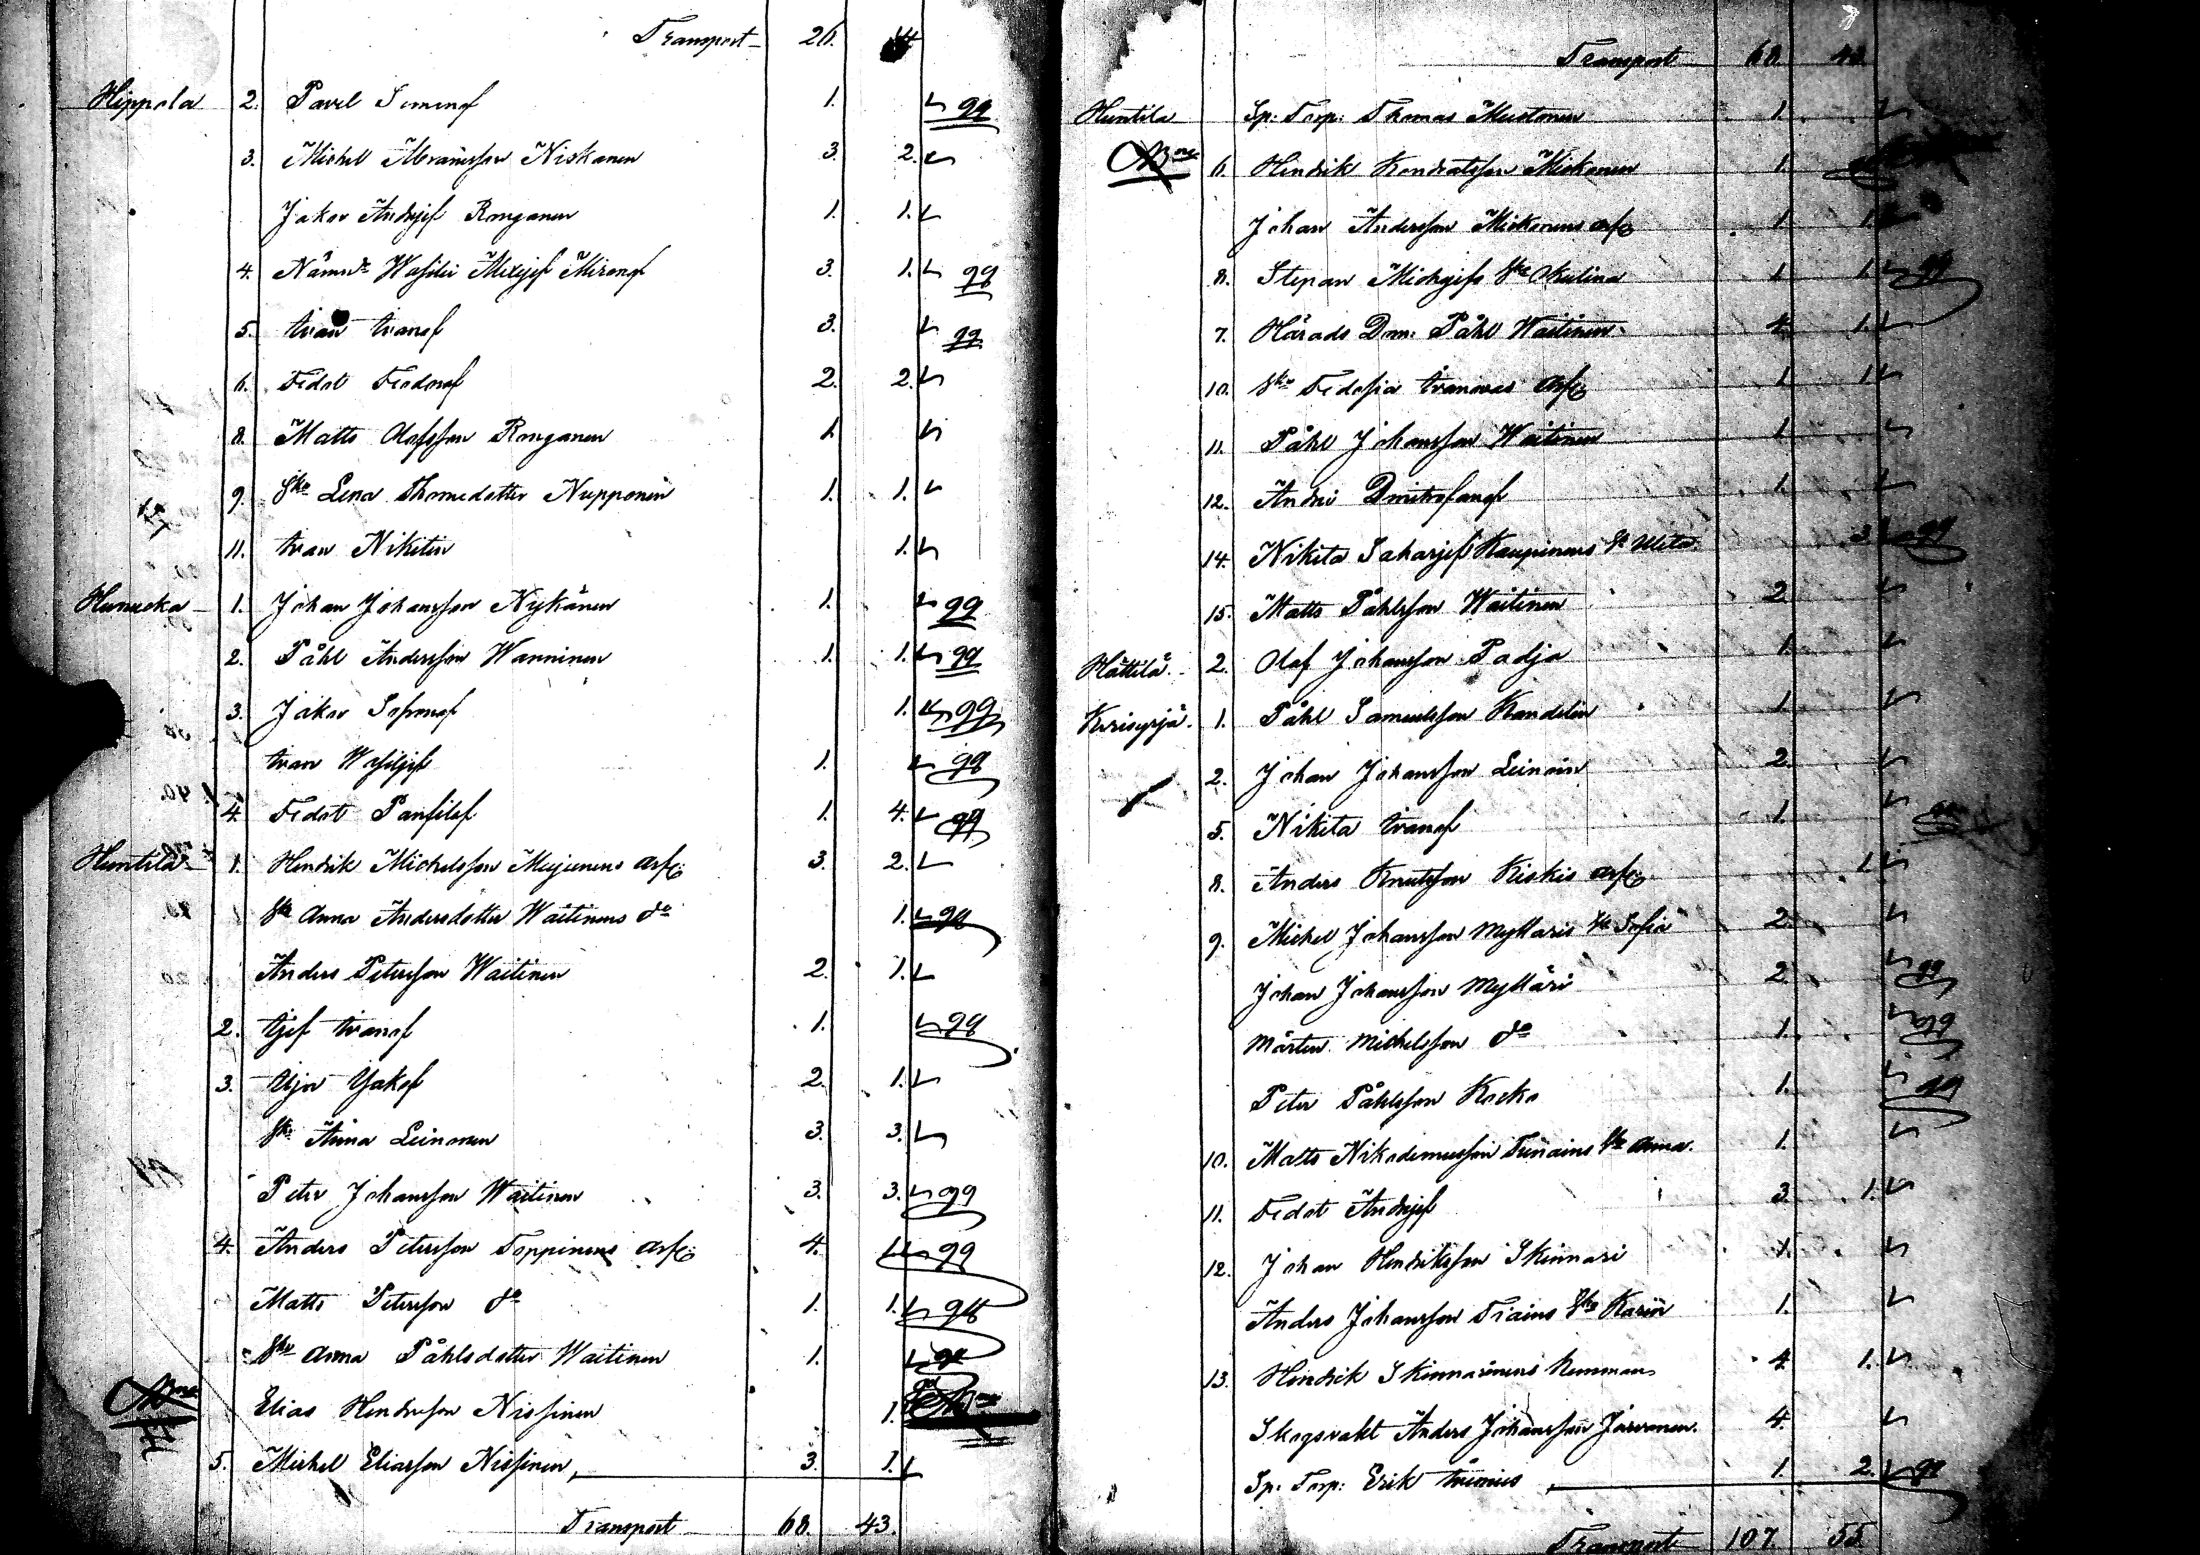 Transport 26. 14
Hippola 2. Pavel Simonof 1.
3. Michel Abramsson Niskanen 3. 2.
Jakov Andrejef Ronganen 1. 1.
4. Nämnd: Wasilei Alexejef Mironof 3. 1.
5. Ivan Ivanof 3.
6. Fedot Fedorof 2. 2.
8. Matts Olofsson Ronganen 1.
9. Eko Lena Thomedotter Nupponen 1. 1.
11. Ivan Nikitin 1.
Hunucka 1. Johan Johansson Nykänen 1.
2. Påhl Andersson Wanninen 1. 1.
3. Jakov Safronof 1.
Ivan Wasiljef 1.
4. Fedot Panfilof 1. 4.
Huntila 1. Hendrik Michelsson Mujunens arf: 3. 2.
Eka Anna Andersdotter Waitinens do 1.
Anders Petersson Waitinen 2. 1.
2. Ivanof 1.
3. Ilja Jakof 2. 1.
Eka Anna Leinonen 3. 3.
Peter Johansson Waitinen 3. 3.
4. Anders Petersson Toppinens arf: 4. 1.
Matts Petersson do 1. 1.
Eka Anna Påhlsdotter Waitinen 1.
Elias Hendrsson Nissinen 1.
5. Michel Eliasson Nissinen 3. 1.
Transport 68. 43.
Transport 68. 43
Huntila Sp: Torp: Thomas Mustonen 1.
6. Hendrik Kondratsson Miskonen 1.
Johan Andersson Miskonens arf: 1. 1.
8. Stepan Eka Akulina 1. 1.
7. Härads Dom: Påhl Waitinen 4. 1.
10. Eka Fedosia Ivanovas arf: 1. 1.
11. Påhl Johansson Waitinen 1.
12. Andrei Dmitrofanof 1.
14. Nikita Saharjef Kaupinens 3.
15. Matts Påhlsson Waitinen 2.
Hättilä 2. Olof Johansson Padja 1.
1. Påhl Samuelsson Kandelin 1.
2. Johan Johansson Leinoin 2.
5. Nikita Ivanof 1.
8. Anders Knutsson Kiskis arf: 1.
9. Michel Johansson Myllaris Eka Sofia 2.
Johan Johansson Mylläri 2.
Mårten Michelsson do 1.
Peter Påhlsson Kocko 1.
10. Matts Nikodemusson Eka Anna. 1.
11. Fedot Andrejef 3. 1.
12. Johan Hendriksson Skinnari 1.
Anders Johansson Eka Karin 1.
13. Hendrik Skinnarinens 4. 1.
Skogsvakt Anders Johansson Järvonen. 4.
Sp: Torp: Erik 1. 2.
Transport 107. 55